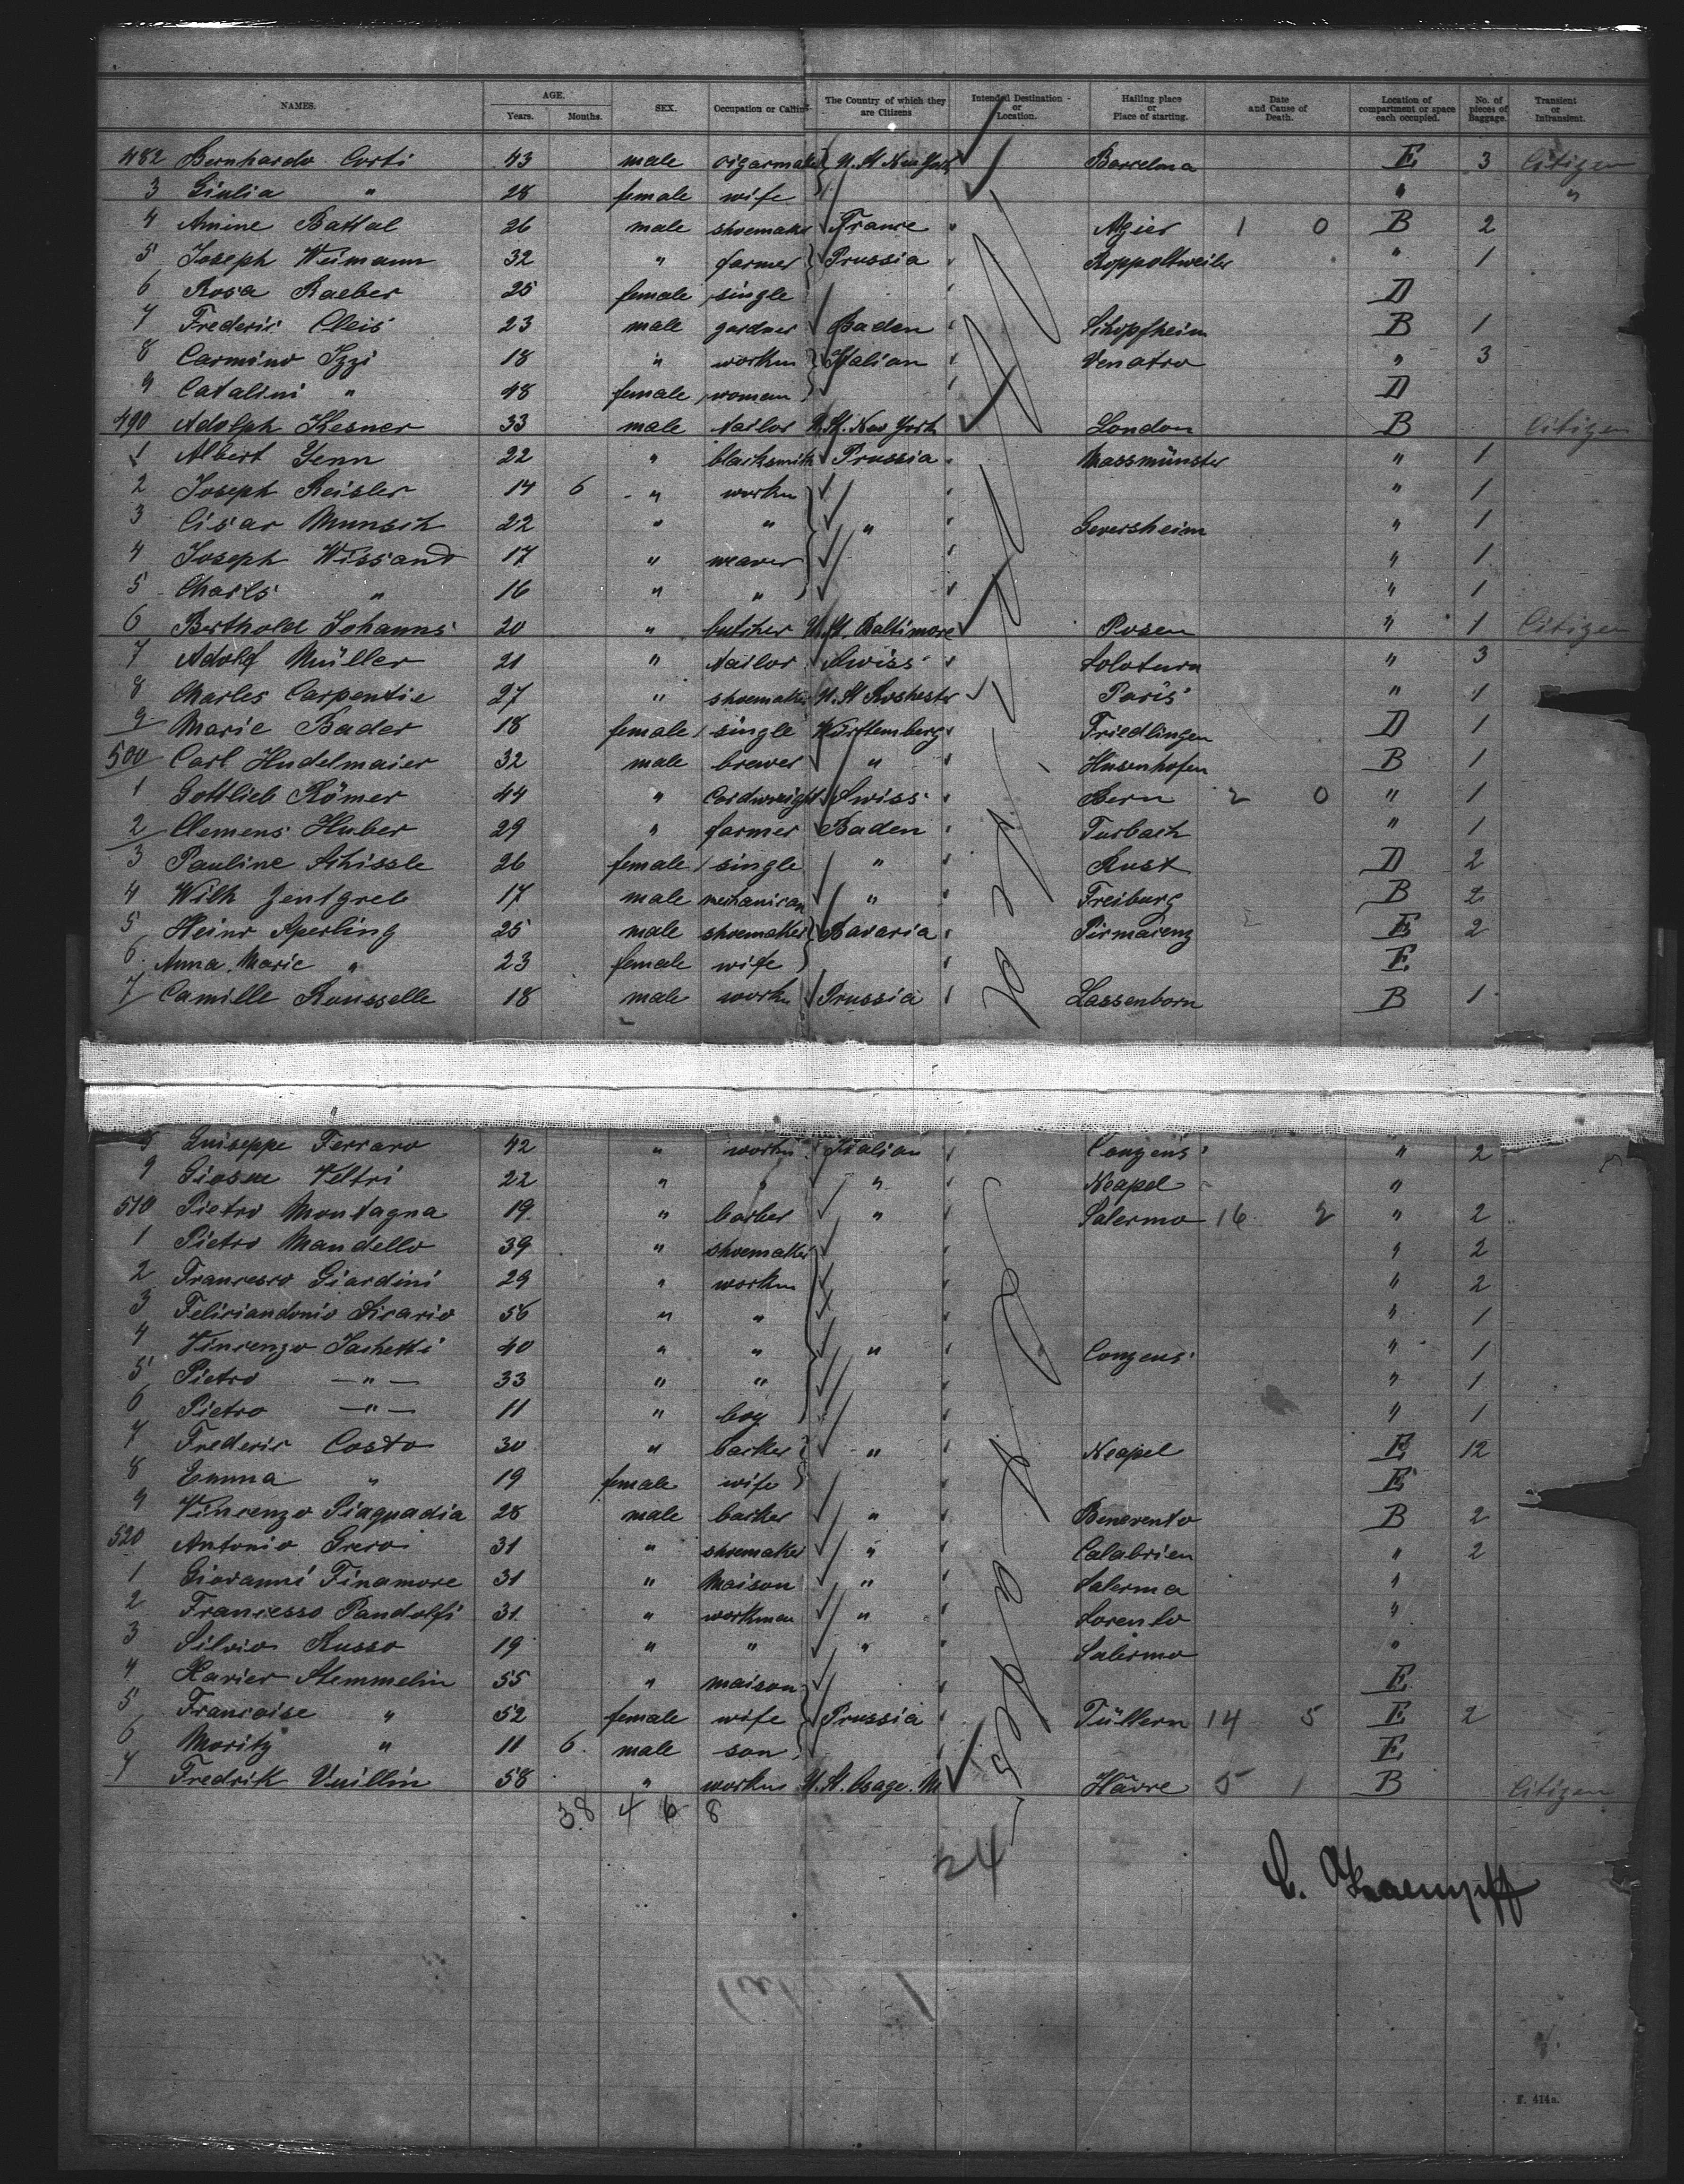 NAMES. AGE. Years. Months. SEX. Occupation or Calling The Country of which they are Citizens Intended Destination or Location. Hailing place or Place of starting. Date and Cause of Death. Location of compartment or space each occupied. No. of pieces of Baggage. Transient or Intransient.
482 Bernhardo Corti 43 male cigarmaker U. St. New York Barcelona E 3 Citizen
3 Giulia " 28 female wife " "
4 Amine Battal 26 male shoemaker France " Algier 1 0 B 2
5 Joseph Weimann 32 " farmer Prussia Roppoltweiler " 1
6 Rosa Raeber 25 female single D
7 Frederic Cleis 23 male gardner Baden Schopfheim B 1
8 Carmino Izzi 18 " workm Italian Venatro " 3
9 Catalini " 48 female woman D
490 Adolph Kesner 33 male tailor U. St. New York London B Citizen
1 Albert Jenn 22 " blacksmith Prussia Massmünster " 1
2 Joseph Reisler 14 6 " workm " 1
3 Cisar Munsch 22 " " " Geversheim " 1
4 Joseph Wissand 17 " weaver " 1
5 Charls " 16 " " " 1
6 Berthold Johanns 20 " butcher U. St. Baltimore Posen " 1 Citizen
7 Adolf Müller 21 " tailor Swiss Soloturn " 3
8 Charles Carpentie 27 " shoemaker U. St Roshester Paris " 1
9 Marie Bader 18 female single Württemberg Friedlingen D 1
500 Carl Hudelmaier 32 male brewer " Husenhofen B 1
1 Gottlieb Römer 44 " Cordwreight Swiss Bern 2 0 " 1
2 Clemens Huber 29 " farmer Baden Furbach " 1
3 Pauline Schissle 26 female single " Rust D 2
4 Wilh Zentgreb 17 male mechanican " Freiburg B 2
5 Heinr Sperling 25 male shoemaker Bavaria Pirmasenz E 2
6 Anna Marie " 23 female wife E
7 Camille Rousselle 18 male workm Prussia Lassenborn B 1
8 Guiseppe Ferraro 42 " workm Italian Conzens " 2
9 Giosue Veltri 22 " " " Neapel "
510 Pietro Montagna 19 " barber " Salermo 16 2 " 2
1 Pietro Mandello 39 " shoemaker " 2
2 Francesco Giardini 29 " workm " 2
3 Feliciandonio Sicario 56 " " " 1
4 Vincenzo Sachetti 40 " " " Conzens " 1
5 Pietro — " — 33 " " " 1
6 Pietro — " — 11 " boy " 1
7 Frederic Costo 30 " barker " Neapel E 12
8 Emma " 19 female wife E
9 Vincenzo Piaquadia 28 male barker " Benevento B 2
520 Antonio Greco 31 " shoemaker " Calabrien " 2
1 Giovanni Finamore 31 " Maison " Salerma "
2 Francesso Pandolfi 31 " workman " Sorento "
3 Silvio Russo 19 " " " Salermo "
4 Xavier Stemmelin 55 " maison E
5 Francoise " 52 female wife Prussia Tüllern 14 5 E 2
6 Moritz " 11 6 male son E
7 Fredrik Vuillin 58 " workm U. St. Osage. M Hâvre 5 1 B Citizen
38 4 6 8
24
C. Kaempff
F. 414a.